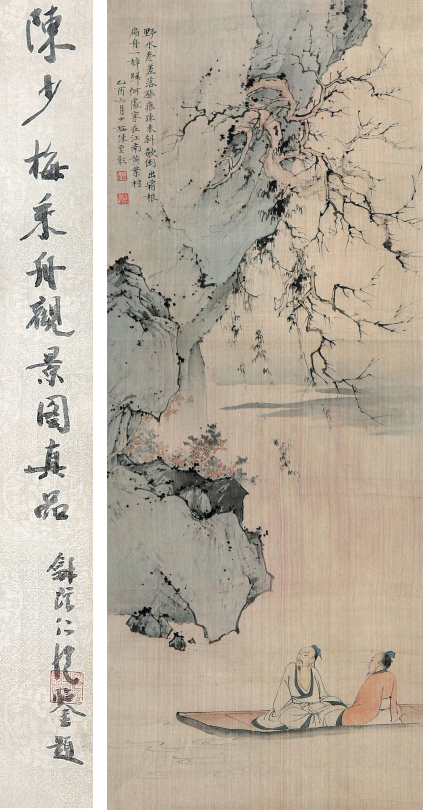 陳少梅乘舟觀景圖真品
龢溪仁愷鑒題
野水參差落漲痕疎林欹倒出霜根
扁舟一棹歸何處家在江南黃葉村
乙酉六月少梅陳雲彰